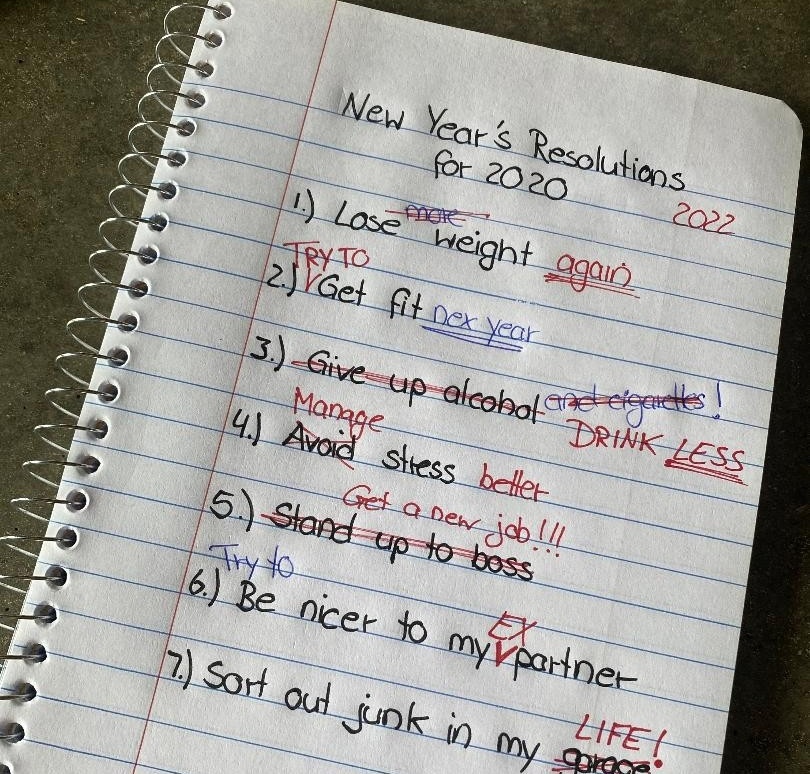 New Year's Resolutions
for 2020
2022
1.) Lose more weight again
TRY TO
2.) Get fit nex year
3.) Give up alcohol and cigarettes!
DRINK LESS
Manage
4.) Avoid stress better
Get a new job!!!
5.) Stand up to boss
Try to
6.) Be nicer to my partner
EX
7.) Sort out junk in my garage
LIFE!